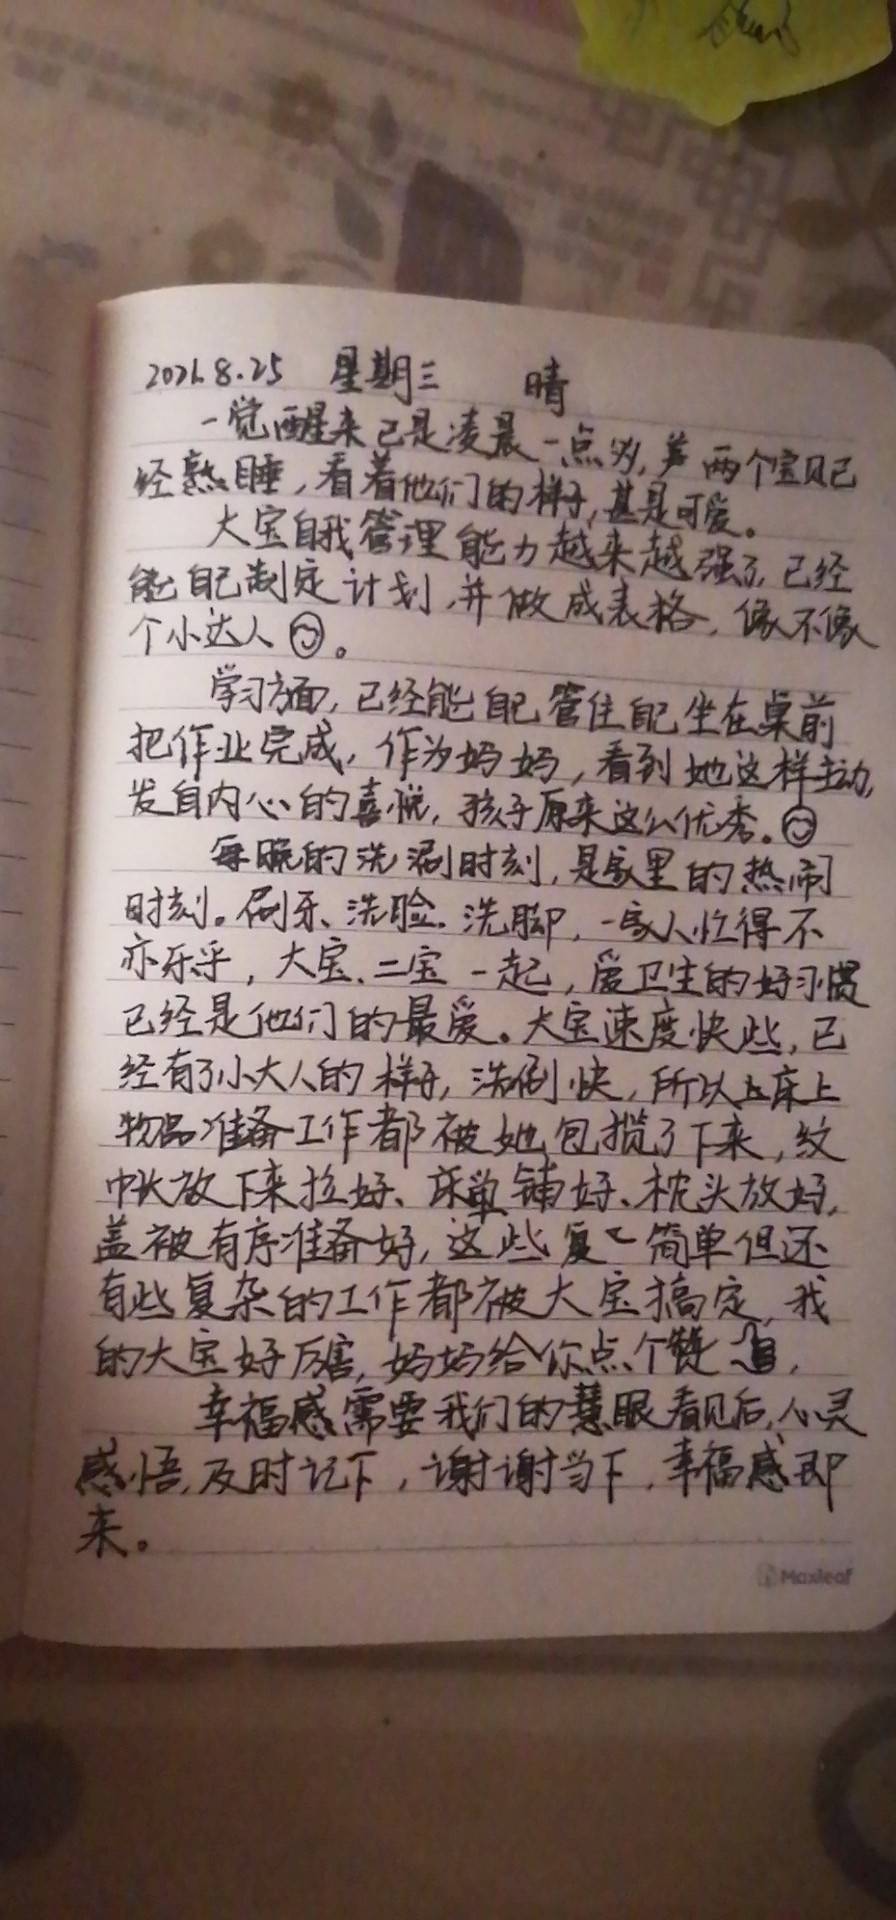 2021.8.25 星期三 晴
一觉醒来已是凌晨一点多,两个宝贝已
经熟睡,看着他们的样子,甚是可爱。
大宝自我管理能力越来越强了,已经
能自己制定计划,并做成表格,像不像
个小达人。
学习方面,已经能自己管住自己坐在桌前
把作业完成,作为妈妈,看到她这样主动,
发自内心的喜悦,孩子原来这么优秀。
每晚的洗涮时刻,是家里的热闹
时刻。刷牙、洗脸、洗脚,一家人忙得不
亦乐乎,大宝、二宝一起,爱卫生的好习惯
已经是他们的最爱。大宝速度快些,已
经有了小大人的样子,洗刷快,所以上床上
物品准备工作都被她包揽了下来,纹
帐放下来拉好、床单铺好、枕头放好,
盖被有序准备好,这些简单但还
有些复杂的工作都被大宝搞定,我
的大宝好厉害,妈妈给你点个赞,
幸福感需要我们的慧眼看见后,心灵
感悟,及时记下,谢谢当下,幸福感即
来。
Maxleaf